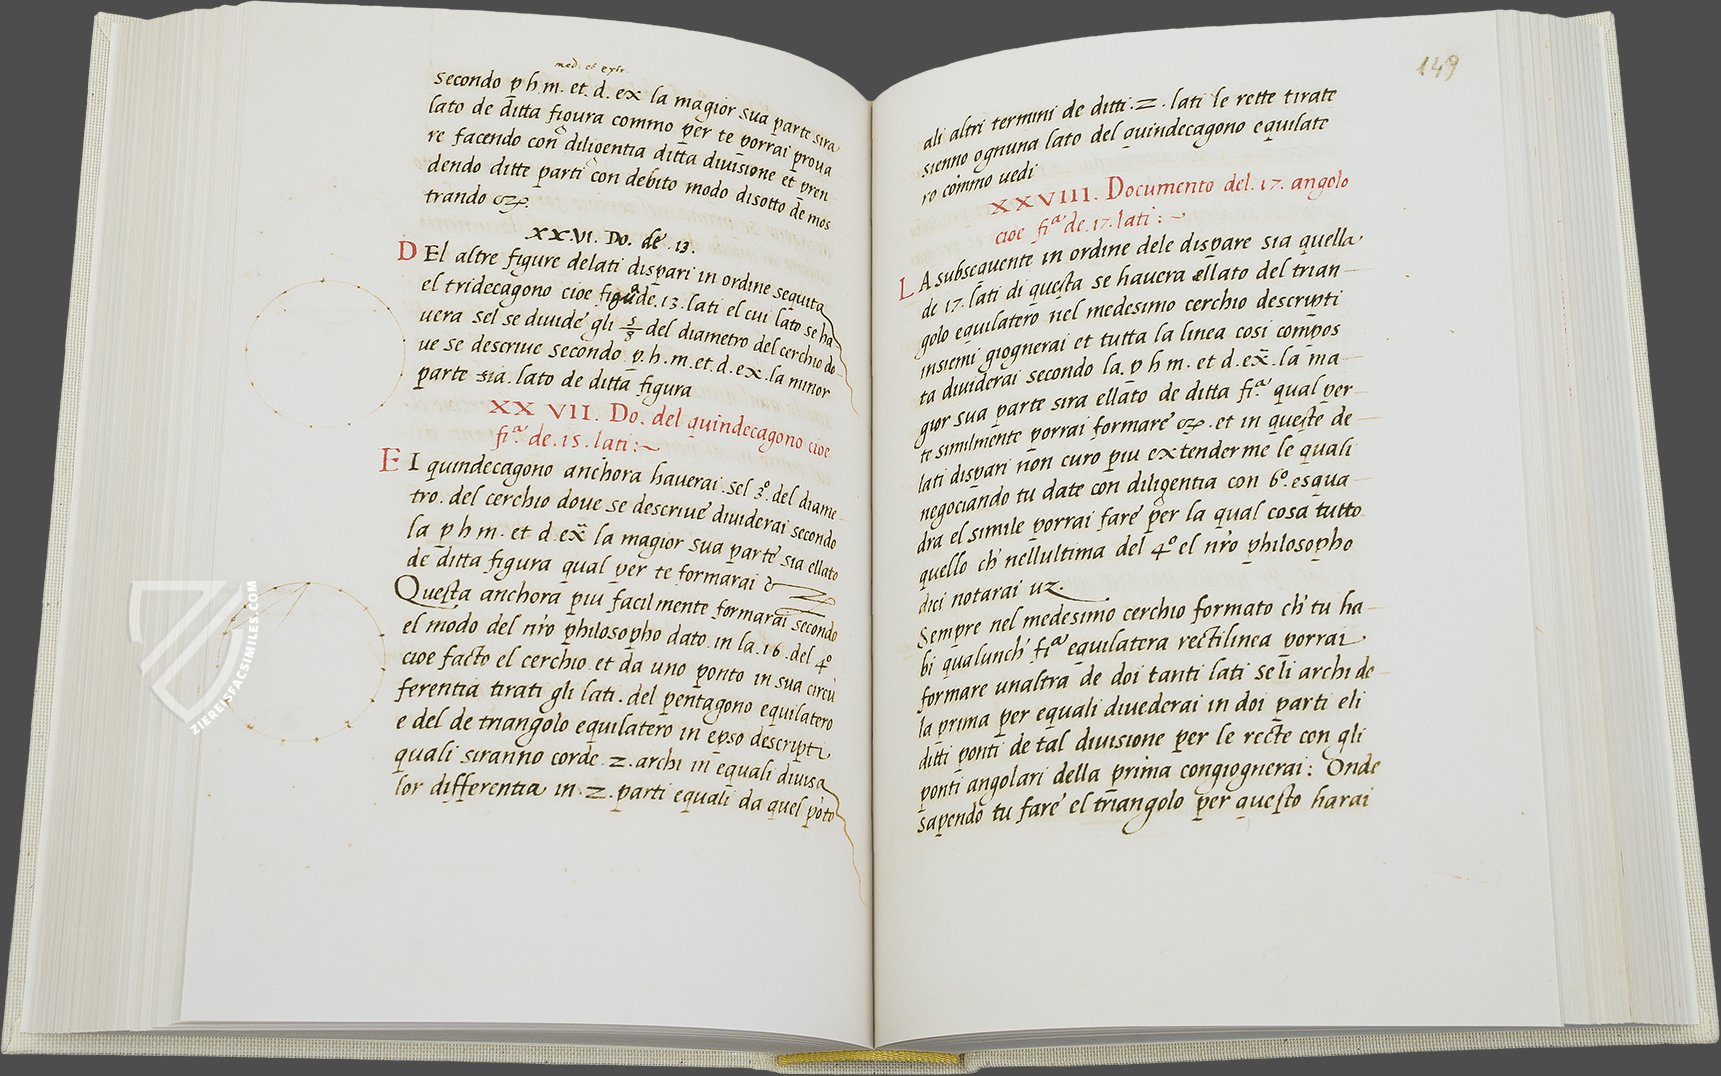 med. et extr.
secondo p h.m. et. d. ex la magior sua parte sira
lato de ditta figura commo per te porrai prova
re facendo con diligentia ditta divisione et pren
dendo ditte parti con debito modo disotto de mos
trando
XXVI. Do. de .13.
DEl altre figure delati dispari in ordine sequita
el tridecagono cioe figura de .13. lati el cui lato se ha
vera sel se divide gli 5/8 del diametro del cerchio do
ve se descrive secondo p. h. m. et. d. ex. la minor
parte sia. lato de ditta figura
XXVII. Do. del quindecagono cioe
fi.ª de .15. lati:~
EI quindecagono anchora haverai sel 3º del diame
tro. del cerchio dove se descrive dividerai secondo
la p h m. et d. ex la magior sua parte sia ellato
de ditta figura qual per te formarai &
Questa anchora piu facilmente formarai secondo
el modo del nro philosopho dato in la .16. del 4º
cioe facto el cerchio et da uno ponto in sua circu
ferentia tirati gli lati. del pentagono equilatero
e del de triangolo equilatero in epso descripti
quali siranno corde .2. archi in equali divisa
lor differentia in .2. parti equali da quel poto
149
ali altri termini de ditti .2. lati le rette tirate
sienno ognuna lato del quindecagono equilate
ro commo uedi
XXVIII. Documento del .17. angolo
cioe fiª de .17. lati:~
LA subsequente in ordine dele dispare sia quella
de 17. lati di questa se havera ellato del trian
golo equilatero nel medesimo cerchio descripti
insiemi giognerai et tutta la linea cosi compos
ta dividerai secondo la. p h m. et d. ex. la ma
gior sua parte sira ellato de ditta fi.ª qual per
te similmente porrai formare .et in queste de
lati dispari non curo piu extenderme le quali
negociando tu date con diligentia con 6º. esqua
dra el simile porrai fare per la qual cosa tutto
quello ch' nellultima del 4º el nro philosopho
dici notarai uz.
Sempre nel medesimo cerchio formato ch' tu ha
bi qualunch' fiª equilatera rectilinea porrai
formare unaltra de doi tanti lati se li archi de
la prima per equali divederai in doi parti eli
ditti ponti de tal divisione per le recte con gli
ponti angolari della prima congiognerai: Onde
sapendo tu fare el triangolo per questo harai
ZIEREISFACSIMILES.COM